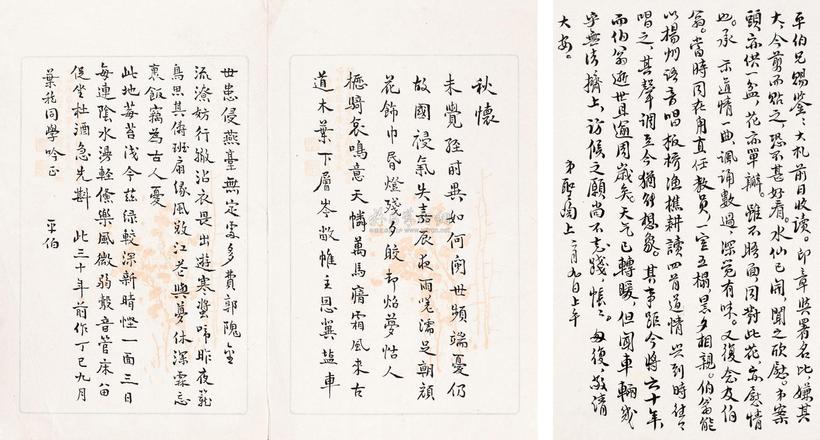 平伯兄賜鑒：大札前日收讀。印章與署名比，嫌其
大，今剪而貼之，恐不甚好看。水仙已開，聞之欣慰。弟案
頭亦供一盆，花亦單瓣。雖不晤面，同對此花，亦慰情
也。承示道情一曲，諷誦數過，深覺有味。又復念及伯
翁。當時同在甪直任教員，一室五榻，晨夕相親。伯翁能
以揚州語音唱板橋漁樵耕讀四首道情，興到時往往
唱之，其聲調至今猶能想像。其事距今將六十年，
而伯翁逝世且逾周歲矣。天氣已轉暖，但車輛或
無法擠上，訪候之願尚不克踐，悵悵。匆復，敬請
大安。
弟聖陶上 二月九日上午
秋懷
未覺經時異如何閱世頻端憂仍
故國祲氣失嘉辰夜雨嗟濡足朝顏
花飾巾昏燈殘多皎却焰夢怙人
櫪騎哀鳴意天憐萬馬瘖霜風來古
道木葉下層岑敝帷主恩冀鹽車
世患侵燕臺無定處多費郭隗金
流潦妨行轍沾衣畏出遊寒螿啼昨夜
鳥思其儔班扇緣風斂江花與夢休深霖忘
裹飯竊為古人憂
此地莓苔淺今茲綠較深新時慳一面三日
每連陰水湯輕儵樂風微弱縠音管床留
促坐社酒急先斟 此三十年前作丁巳九月
葉 同學吟正 平伯